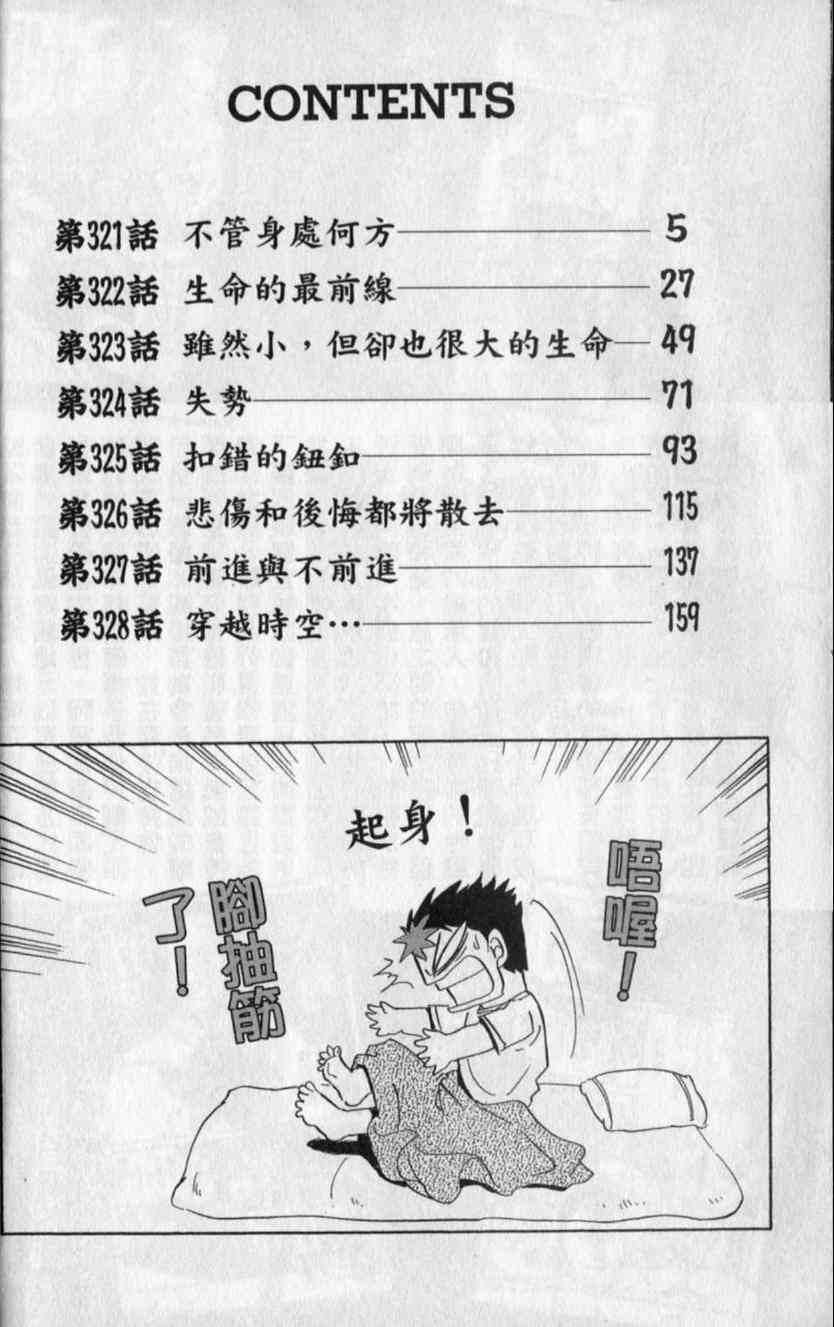 CONTENTS
第321話 不管身處何方 5
第322話 生命的最前線 27
第323話 雖然小，但卻也很大的生命 49
第324話 失勢 71
第325話 扣錯的鈕釦 93
第326話 悲傷和後悔都將散去 115
第327話 前進與不前進 137
第328話 穿越時空… 159
起身！
唔喔！
腳抽筋
了！